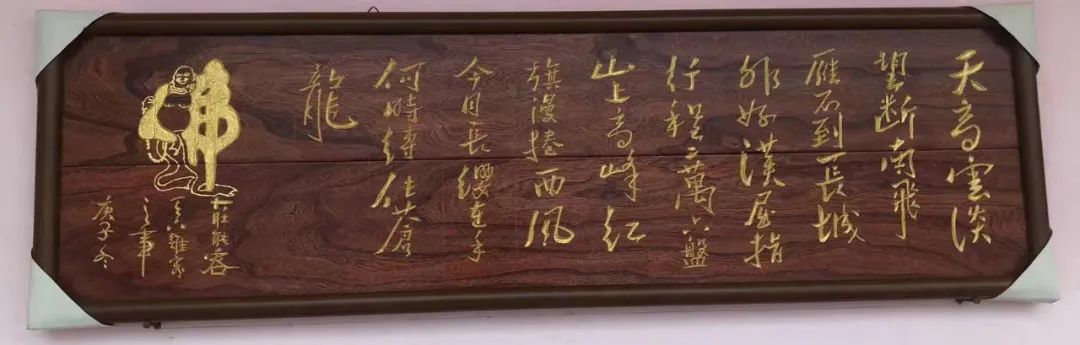 天高雲淡
望断南飛
雁不到長城
非好漢屈指
行程二萬六盤
山上高峰紅
旗漫捲西風
今日長纓在手
何時縛住蒼
龍
佛
大肚能容
天下難容
之事
庚子冬